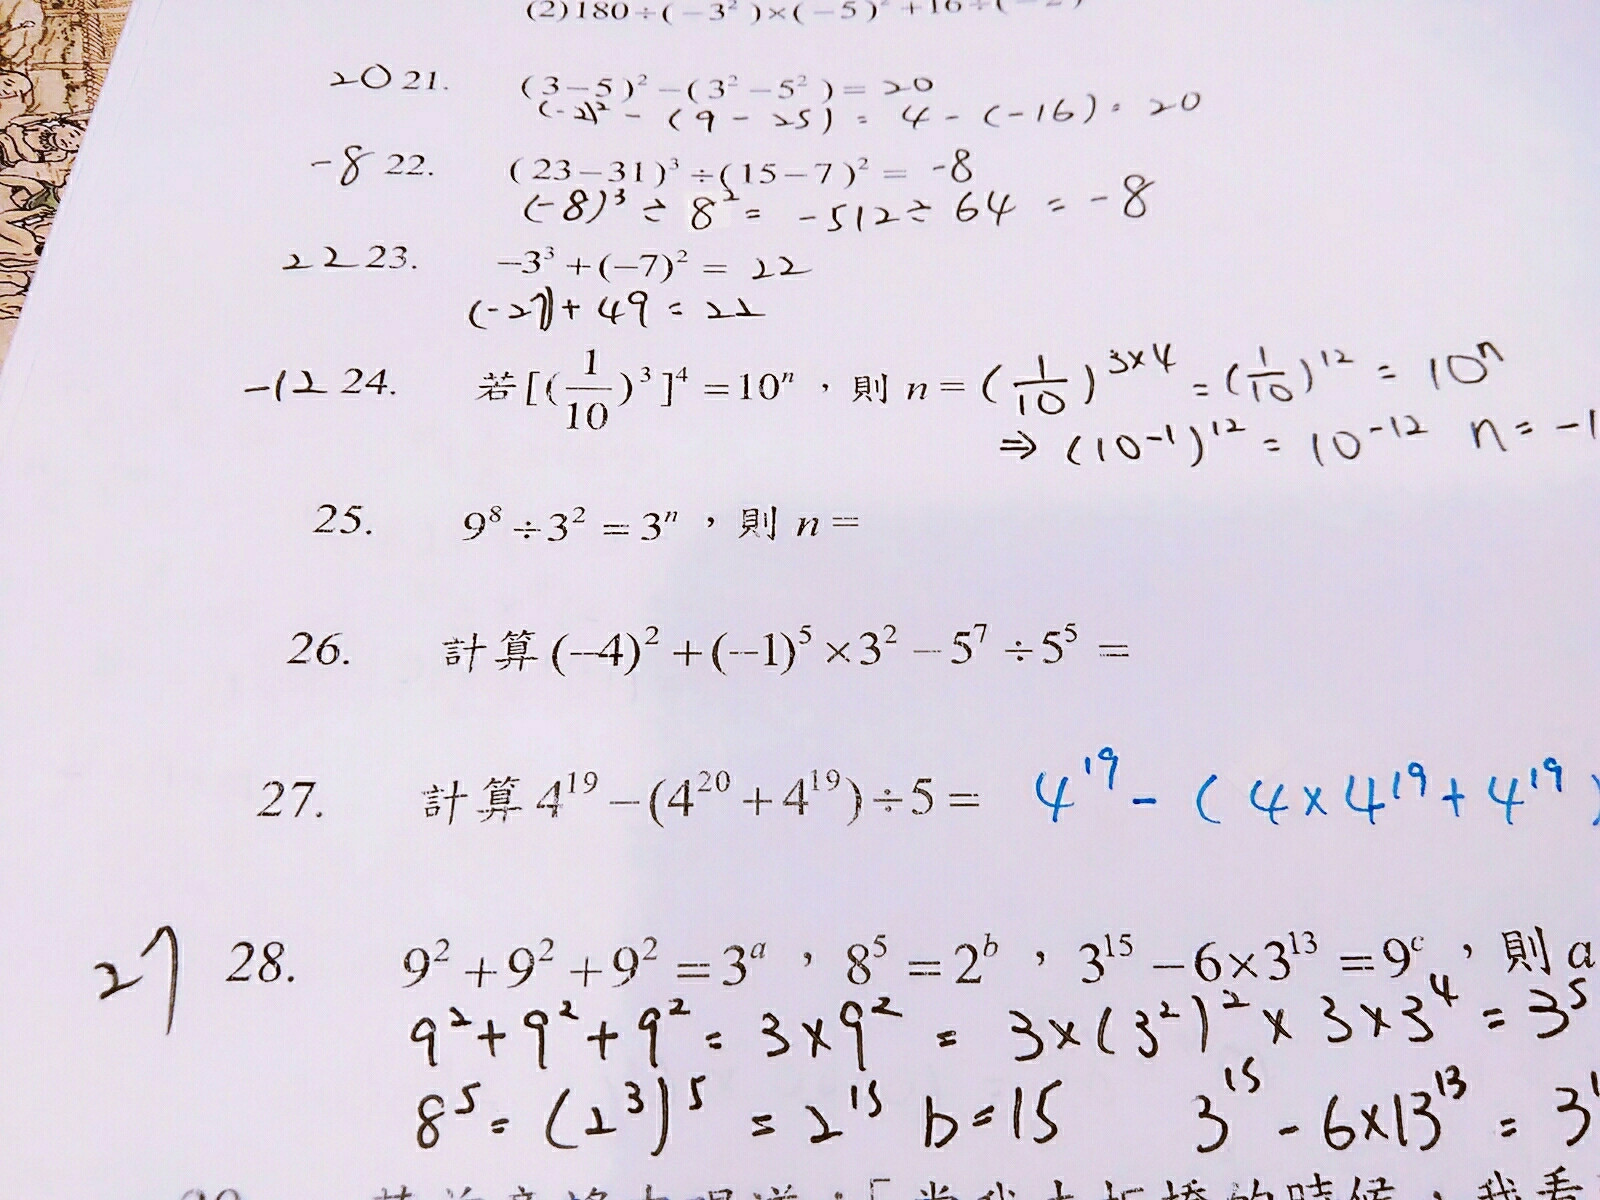 (2)180÷(−3²)×(−5)²+16÷(−2)
20 21. (3−5)²−(3²−5²)= 20
(-2)² - (9 - 25) = 4 - (-16) = 20
-8 22. (23−31)³÷(15−7)²= -8
(-8)³ ÷ 8² = -512 ÷ 64 = -8
22 23. −3³+(−7)²= 22
(-27)+ 49 = 22
-12 24. 若[(1/10)³]⁴=10ⁿ，則 n= (1/10)³ˣ⁴ = (1/10)¹² = 10ⁿ
⇒ (10⁻¹)¹² = 10⁻¹² n = -1
25. 9⁸÷3²=3ⁿ，則 n=
26. 計算(−4)²+(−1)⁵×3²−5⁷÷5⁵=
27. 計算4¹⁹−(4²⁰+4¹⁹)÷5= 4¹⁹ - (4×4¹⁹+4¹⁹)
27 28. 9²+9²+9²=3ᵃ，8⁵=2ᵇ，3¹⁵−6×3¹³=9ᶜ，則a
9²+9²+9² = 3×9² = 3×(3²)² × 3×3⁴ = 3⁵
8⁵ = (2³)⁵ = 2¹⁵ b=15 3¹⁵ - 6×13¹³ = 3¹